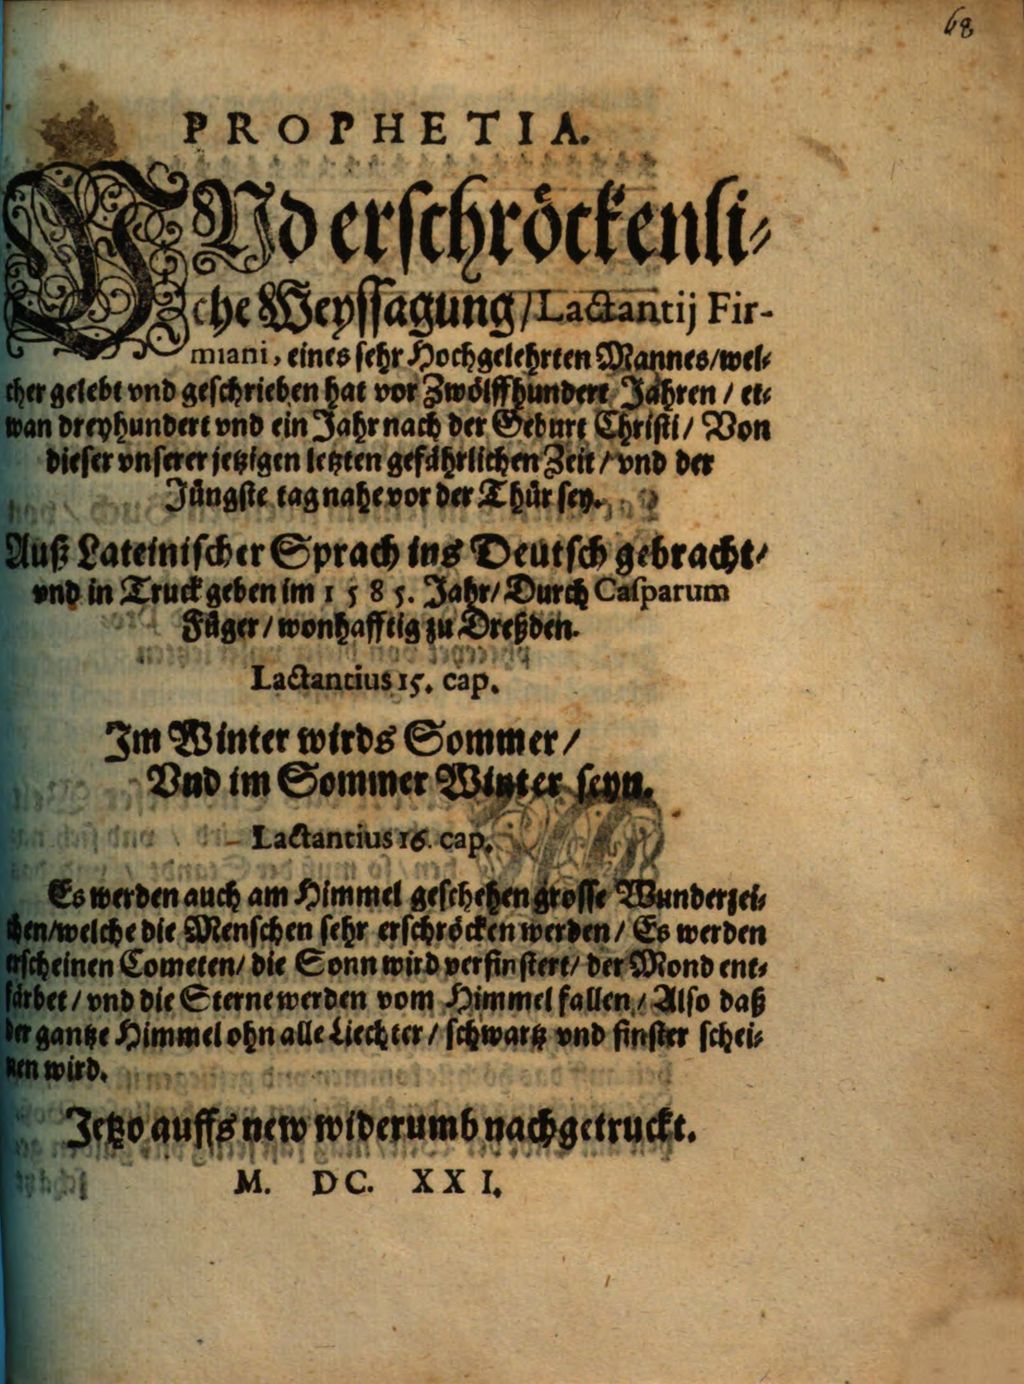 68
PROPHETIA.
VNd erschröckenli⸗
che Weyssagung / Lactantij Fir-
miani, eines sehr Hochgelehrten Mannes / wel⸗
cher gelebt vnd geschrieben hat vor Zwölffhundert Jahren / et⸗
wan dreyhundert vnd ein Jahr nach der Geburt Christi / Von
dieser vnserer jetzigen letzten gefährlichen Zeit / vnd der
Jüngste tag nahe vor der Thür sey.
Auß Lateinischer Sprach ins Deutsch gebracht /
vnd in Truck geben im 1585. Jahr / Durch Casparum
Füger / wonhafftig zu Dreßden.
Lactantius 15. cap.
Im Winter wirds Sommer /
Vnd im Sommer Winter seyn.
Lactantius 16. cap.
Es werden auch am Himmel geschehen grosse Wunderzei⸗
chen / welche die Menschen sehr erschröcken werden / Es werden
erscheinen Cometen / die Sonn wird verfinstert / der Mond ent⸗
färbet / vnd die Sterne werden vom Himmel fallen / Also daß
der gantze Himmel ohn alle Liechter / schwartz vnd finster schei⸗
nen wird.
Jetzo auffs new widerumb nachgetruckt.
M. DC. XXI.